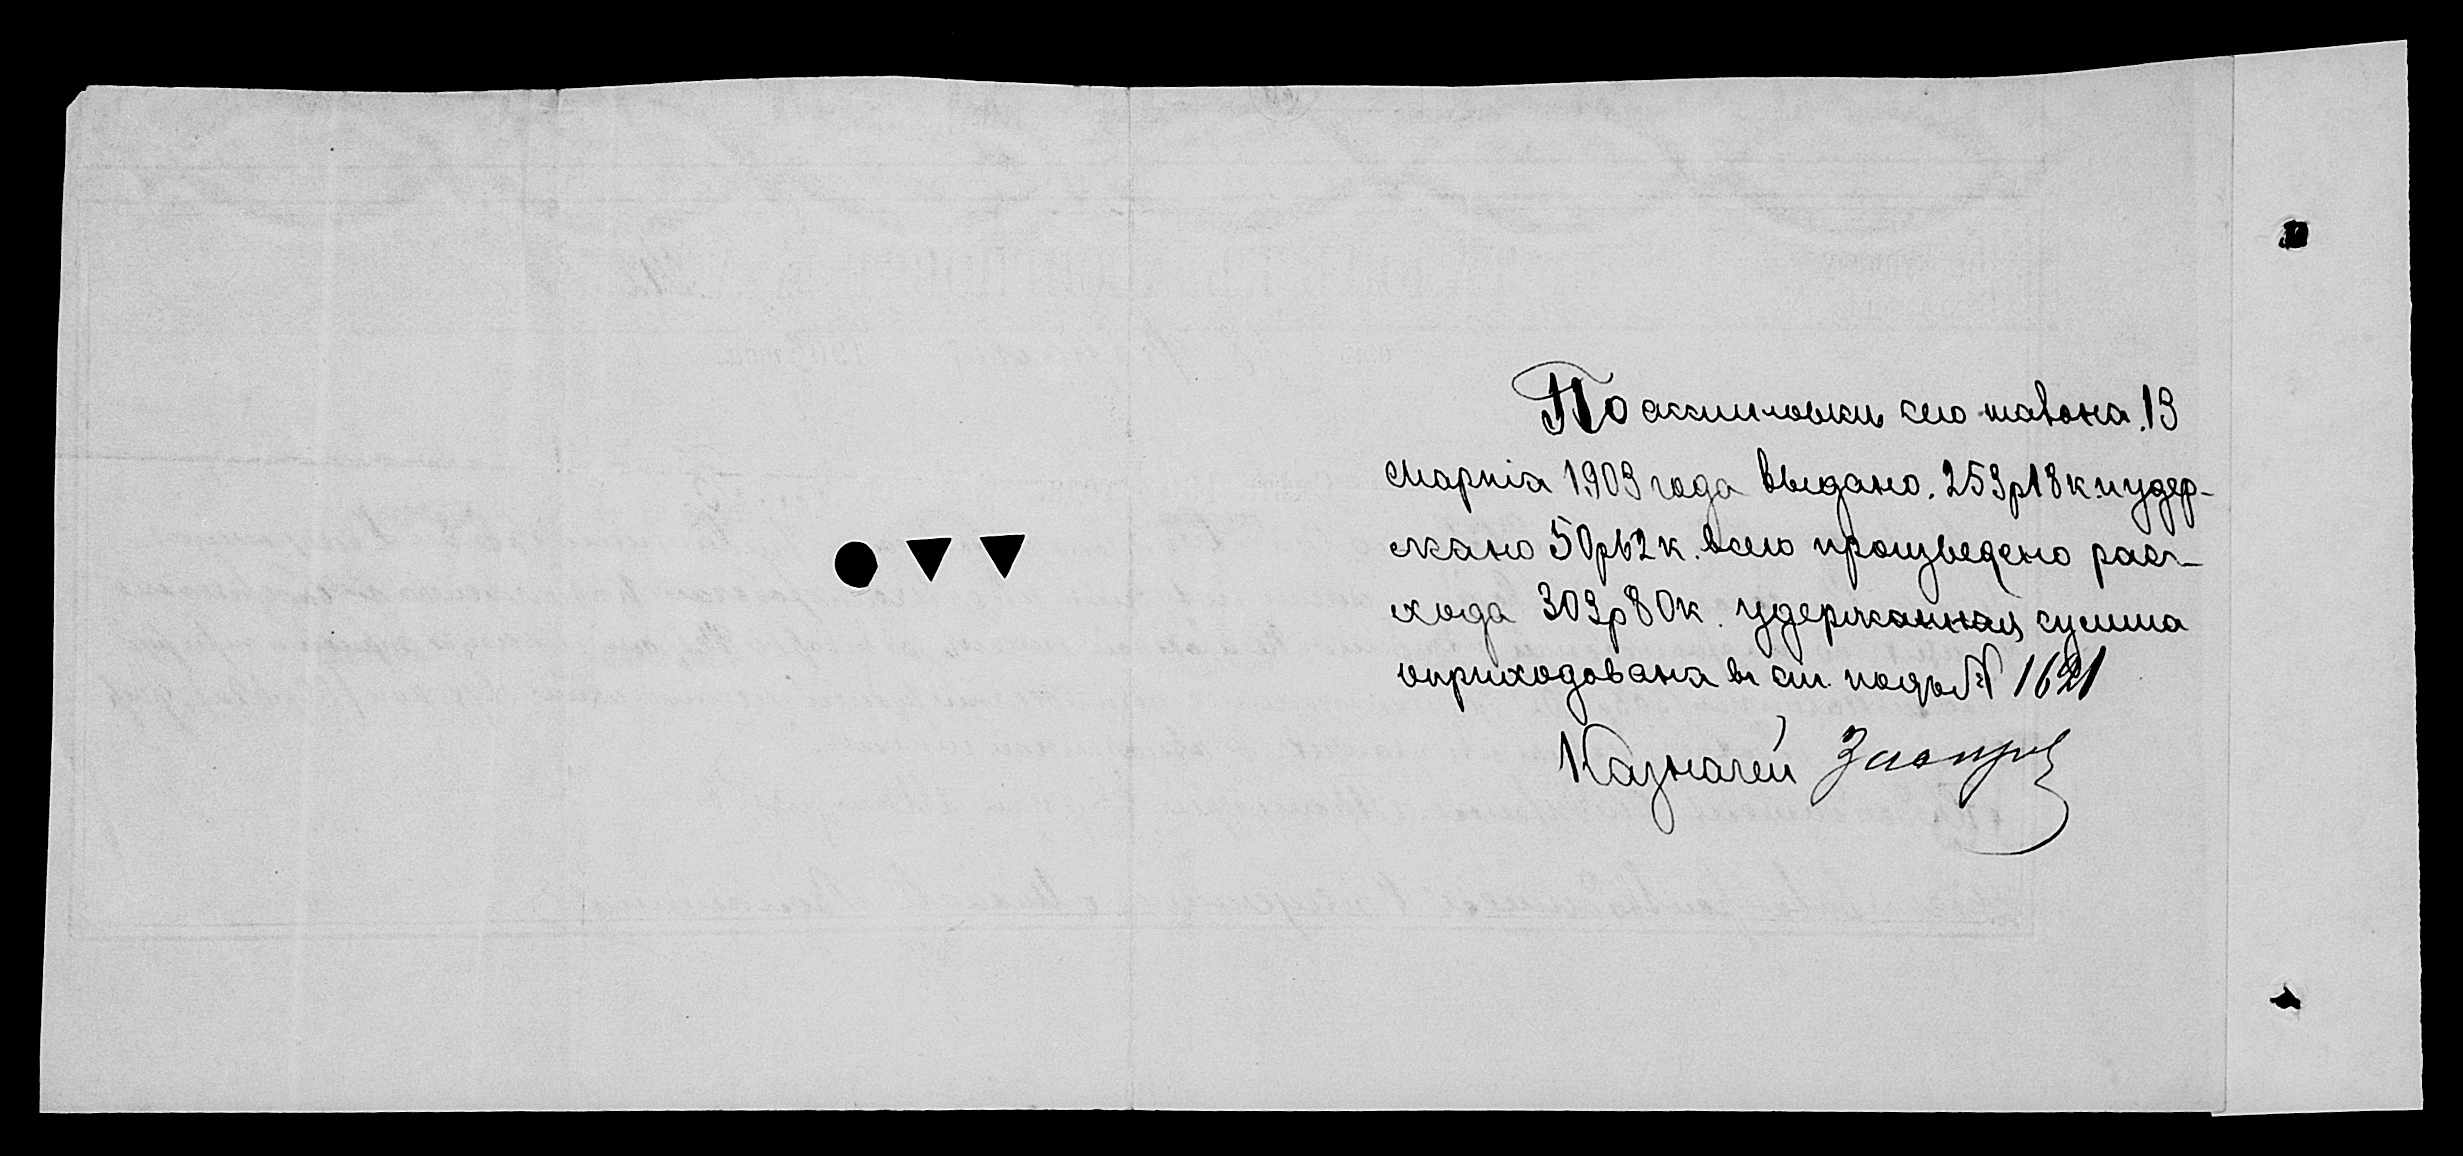 По ассигновки сего талона 13
Марта 1903 года выдано. 253р18к. и удер-
жано 50р62к. всего произведено рас-
хода 303р80к. удержанная сумма
оприходована въ ст. подъ № 1621
Казначей